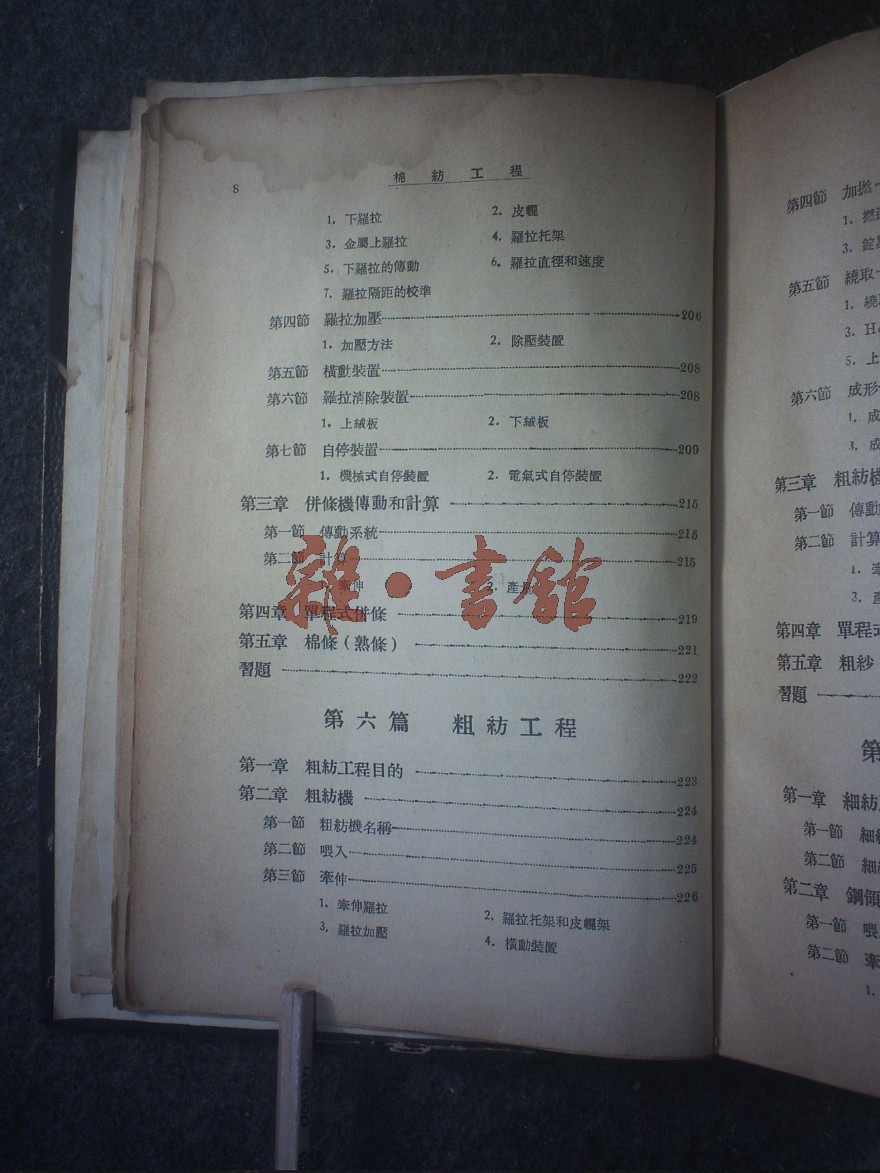 8
棉紡工程
1. 下羅拉 2. 皮輥
3. 金屬上羅拉 4. 羅拉托架
5. 下羅拉的傳動 6. 羅拉直徑和速度
7. 羅拉隔距的校準
第四節 羅拉加壓 206
1. 加壓方法 2. 除壓裝置
第五節 橫動裝置 208
第六節 羅拉清除裝置 208
1. 上絨板 2. 下絨板
第七節 自停裝置 209
1. 機械式自停裝置 2. 電氣式自停裝置
第三章 併條機傳動和計算 215
第一節 傳動系統 215
第二節 計算 215
牽伸 2. 產量
雜·書館
第四章 單程式併條 219
第五章 棉條(熟條) 221
習題 222
第六篇 粗紡工程
第一章 粗紡工程目的 223
第二章 粗紡機 224
第一節 粗紡機名稱 224
第二節 喂入 225
第三節 牽伸 226
1. 牽伸羅拉 2. 羅拉托架和皮輥架
3. 羅拉加壓 4. 橫動裝置
第四節 加撚
1. 撚
3. 錠
第五節 繞取
1. 繞
3. H
5. 上
第六節 成形
1. 成
3. 成
第三章 粗紡機
第一節 傳動
第二節 計算
1. 牽
3. 產
第四章 單程式
第五章 粗紗
習題
第
第一章 細紡
第一節 細
第二節 細
第二章 鋼領
第一節 喂
第二節 牽
1.